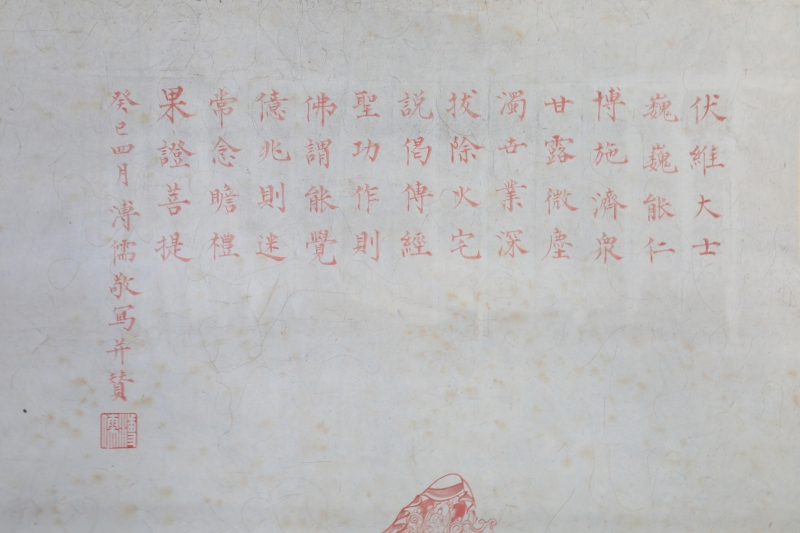 伏維大士
巍巍能仁
博施濟衆
甘露微塵
濁世業深
拔除火宅
説偈傳經
聖功作則
佛謂能覺
億兆則迷
常念瞻禮
果證菩提
癸巳四月溥儒敬寫并贊